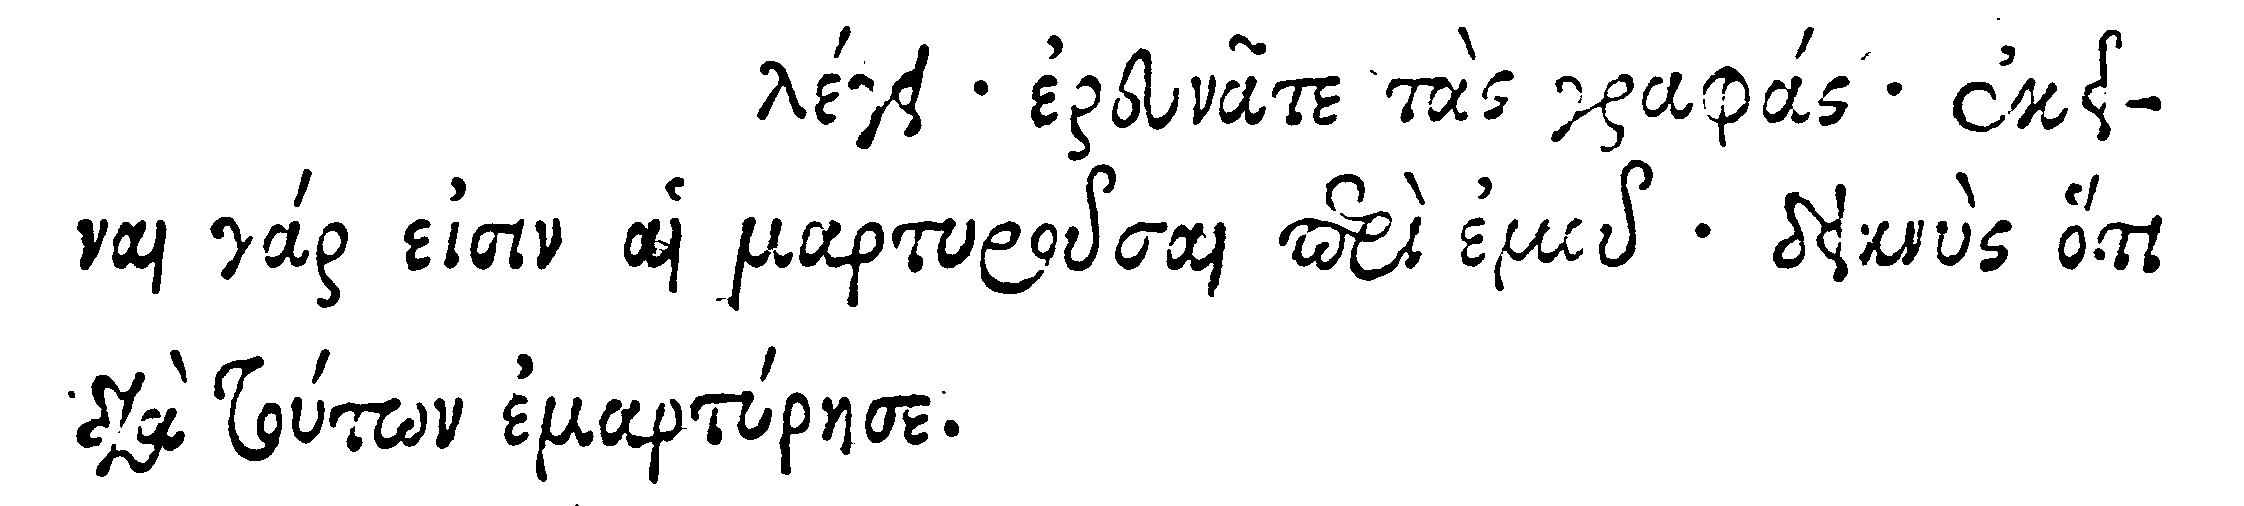 λέγει · ἐρευνᾶτε τὰς γραφάς · ἐκεῖ-
ναι γάρ εἰσιν αἱ μαρτυροῦσαι περὶ ἐμοῦ · δεικνὺς ὅτι
διὰ τούτων ἐμαρτύρησε.